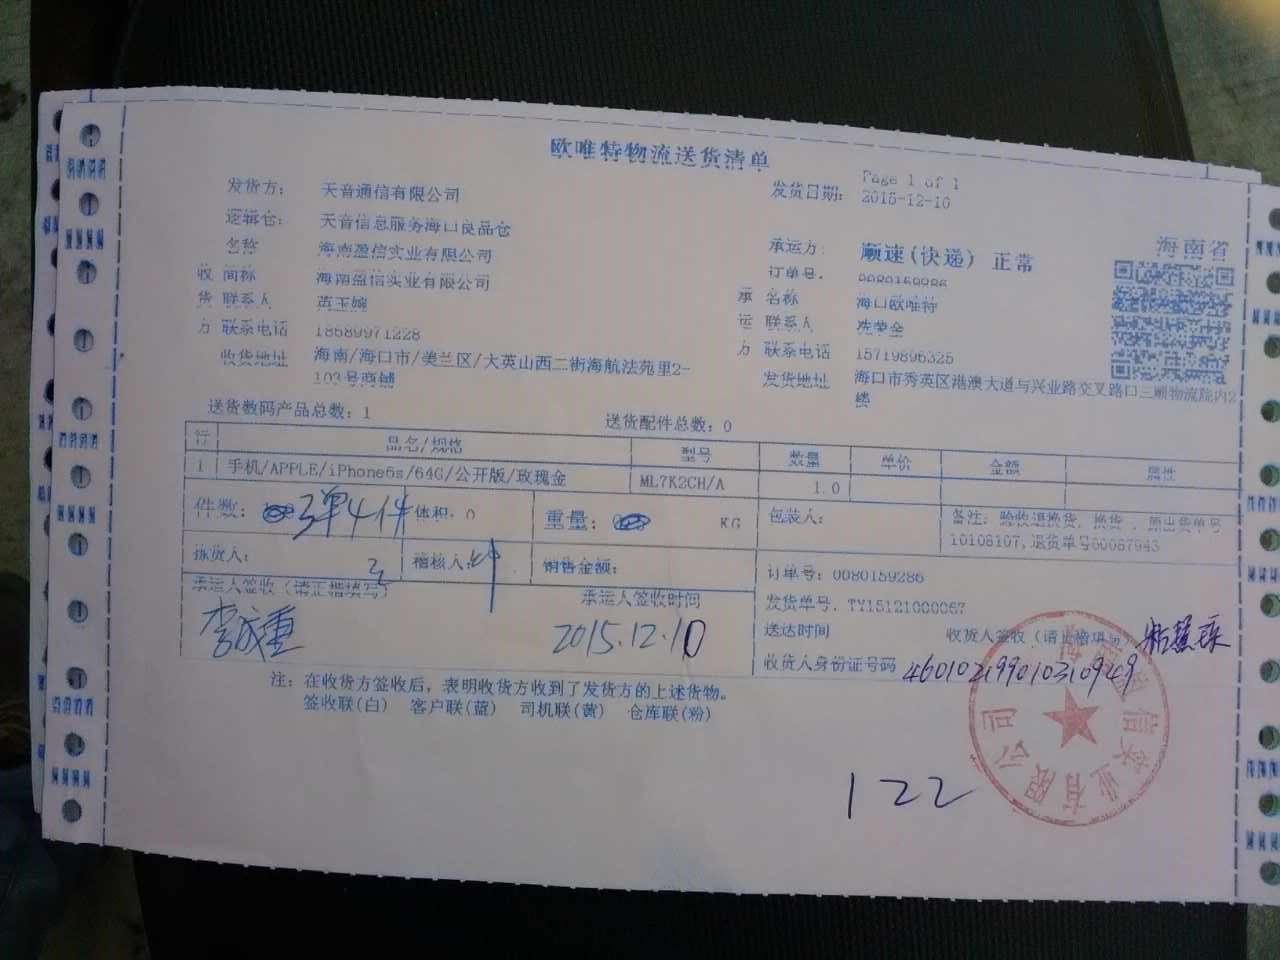 欧唯特物流送货清单
Page 1 of 1
发货方: 天音通信有限公司
发货日期: 2015-12-10
逻辑仓: 天音信息服务海口良品仓
海南省
名称 海南盈信实业有限公司
承运方: 顺速(快递) 正常
收 简称 海南盈信实业有限公司
订单号: 0080159286
货 联系人
承 名称 海口欧唯特
方 联系电话 18689971228
运 联系人
收货地址 海南/海口市/美兰区/大英山西二街海航法苑里2-
103号商铺
方 联系电话 15719896325
发货地址 海口市秀英区港澳大道与兴业路交叉路口三顺物流院内2
楼
送货数码产品总数: 1 送货配件总数: 0
行 品名/规格 型号 数量 单价 金额 属性
1 手机/APPLE/iPhone6s/64G/公开版/玫瑰金 ML7K2CH/A 1.0
件数: 3单4件 体积: 0 重量: KG 包装人:
备注: 验收退换货, 换货, 原出货单号
10108107,退货单号00087943
拣货人: 稽核人: 销售金额:
订单号: 0080159286
承运人签收(请正楷填写) 承运人签收时间
发货单号: TY15121000067
李成重 2015.12.10
送达时间 收货人签收(请正楷填写)
收货人身份证号码 460102199010310949
注: 在收货方签收后, 表明收货方收到了发货方的上述货物。
签收联(白) 客户联(蓝) 司机联(黄) 仓库联(粉)
信实业有限公司
122